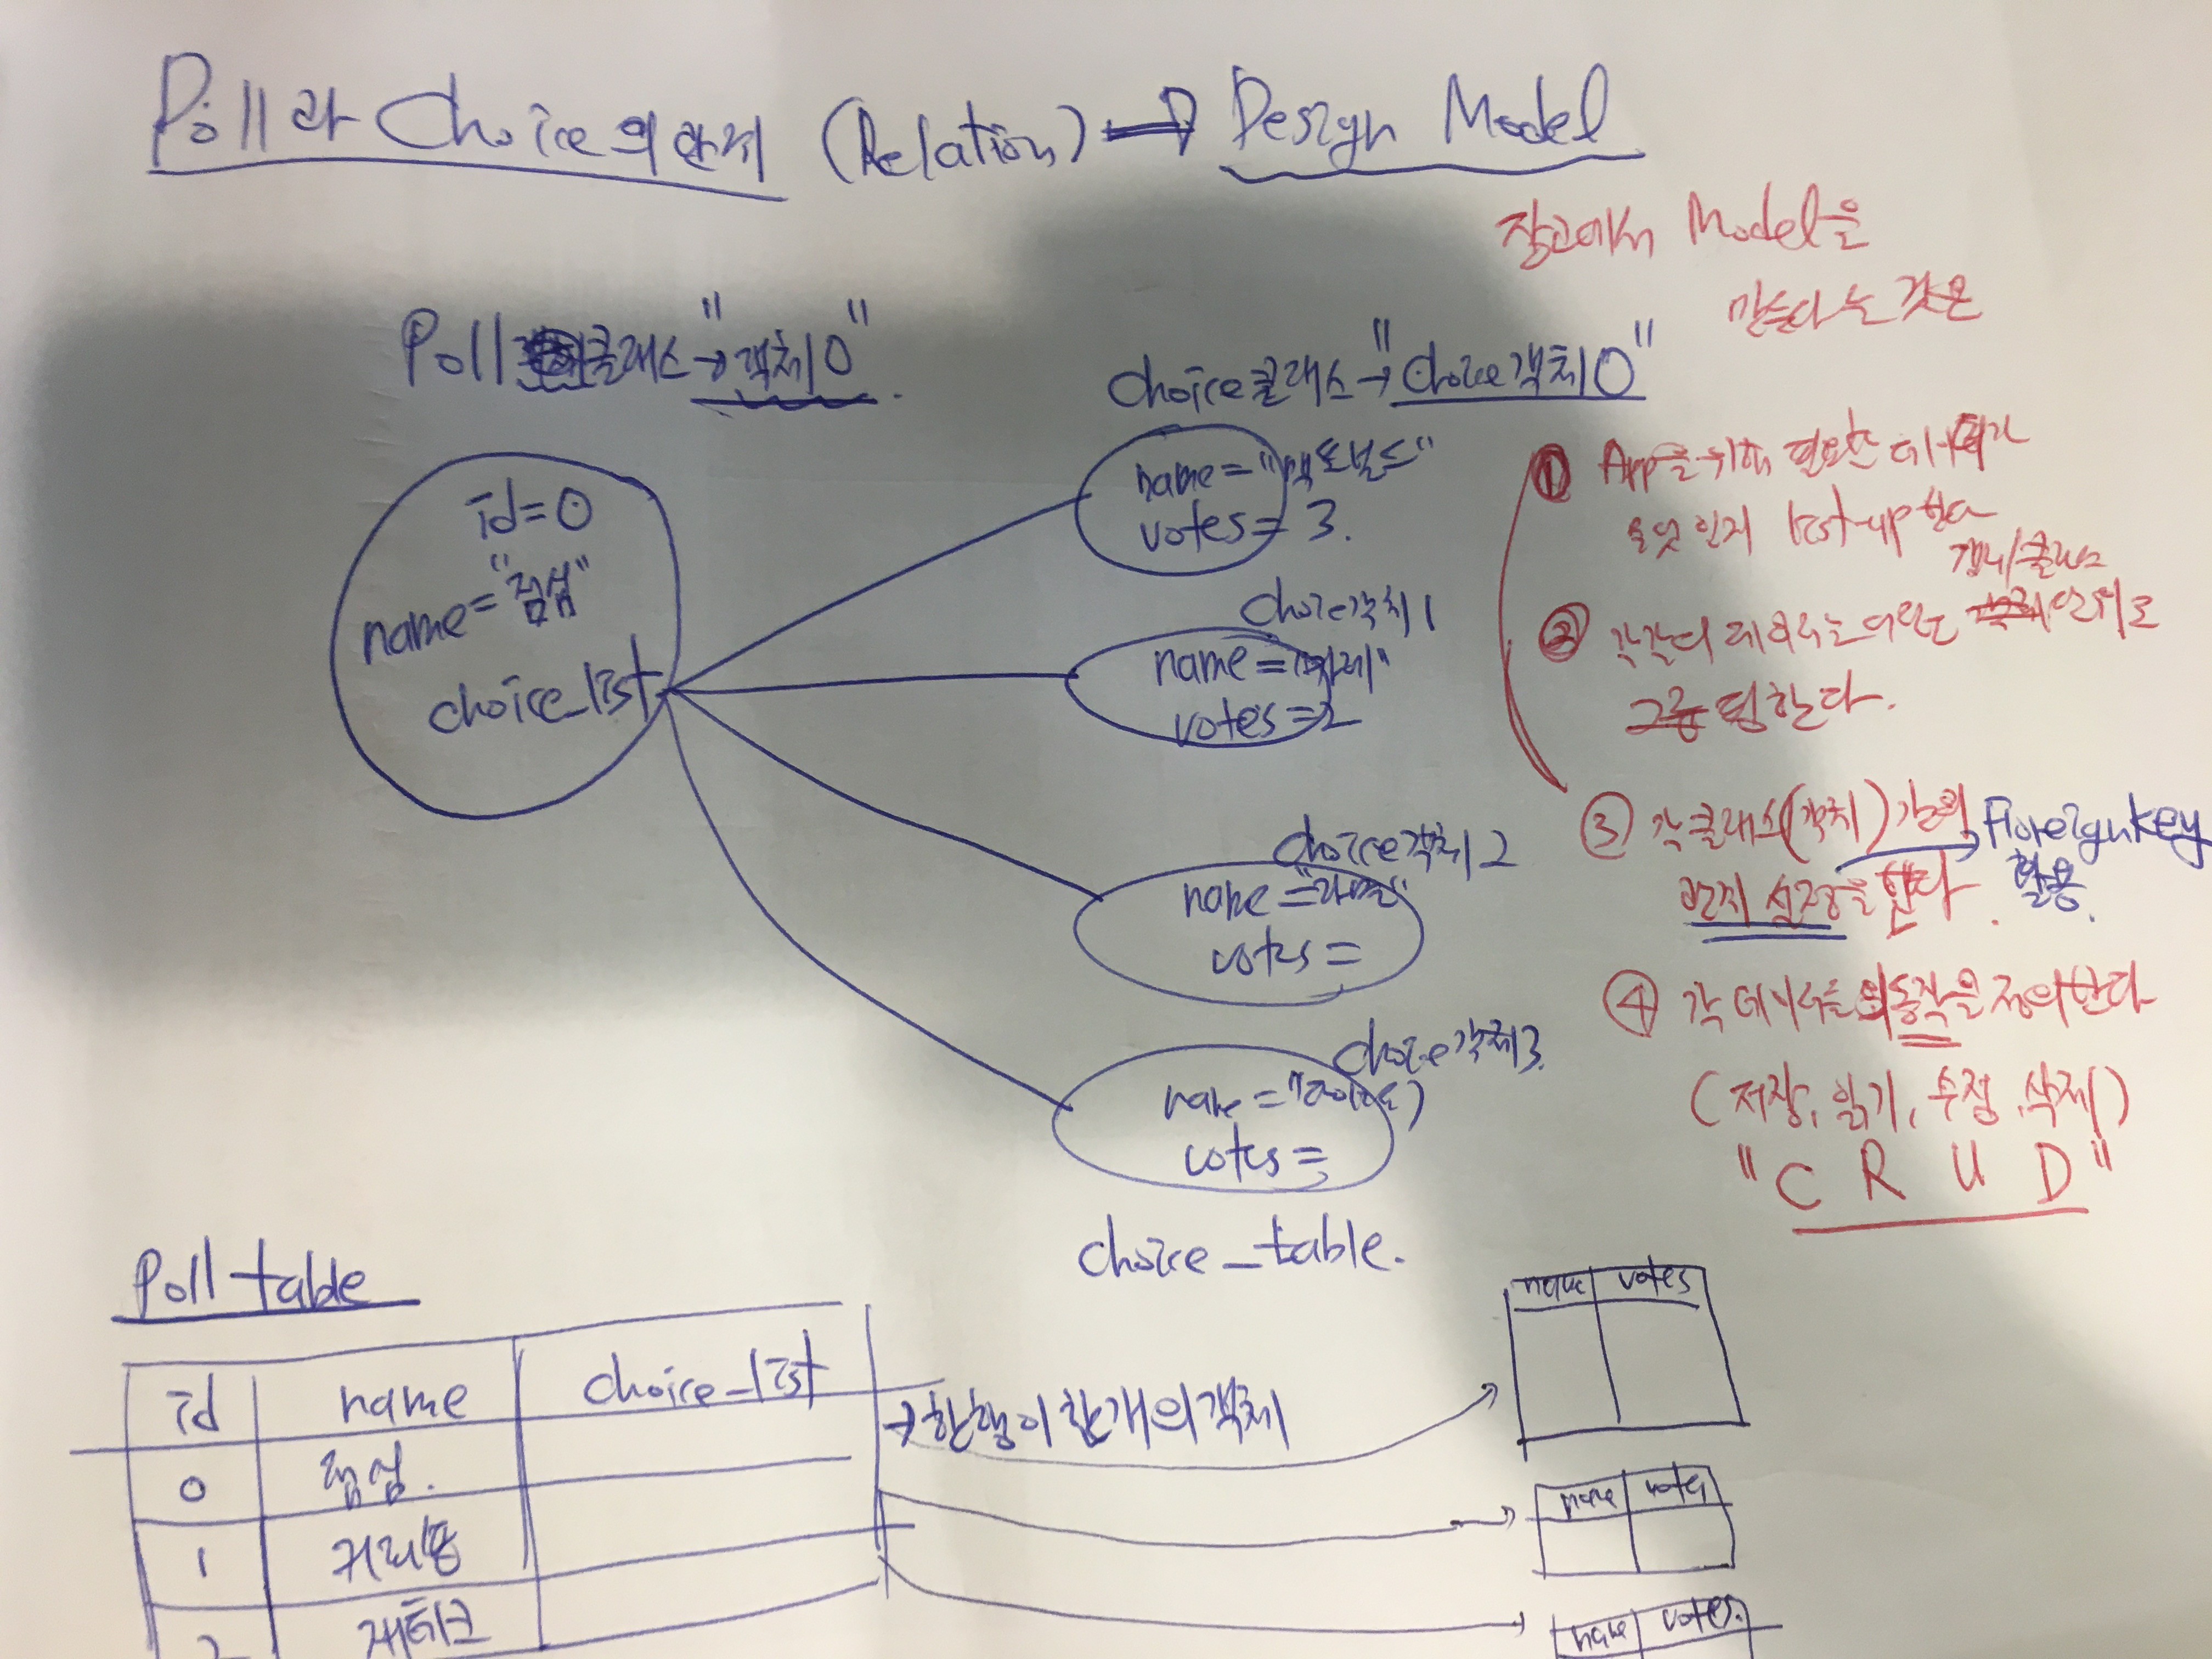 Poll과 Choice의 관계 (Relation) → Design Model
장고에서 Model을
만든다는 것은
Poll 클래스 → "객체0"
choice클래스 → "choice객체0"
id=0
name="점심"
choice_list
name="맥도널드"
votes= 3.
choice객체1
name=
votes=2
choice객체2
name="라멘"
votes=
choice객체3.
name="
votes=
① App을 위해 필요한 데이터가
무엇인지 list-up한다
② 각각의 데이터는 어떤 객체/클래스 단위로
그룹핑한다.
③ 각 클래스(객체)간의 → ForeignKey
관계 설정을 한다. 활용.
④ 각 데이터들의 동작을 정의한다
(저장, 읽기, 수정, 삭제)
"C R U D"
choice_table.
Poll table
id name choice_list
0 점심.
1
2 재테크
→ 한 행이 한 개의 객체
name votes
name votes
name votes.